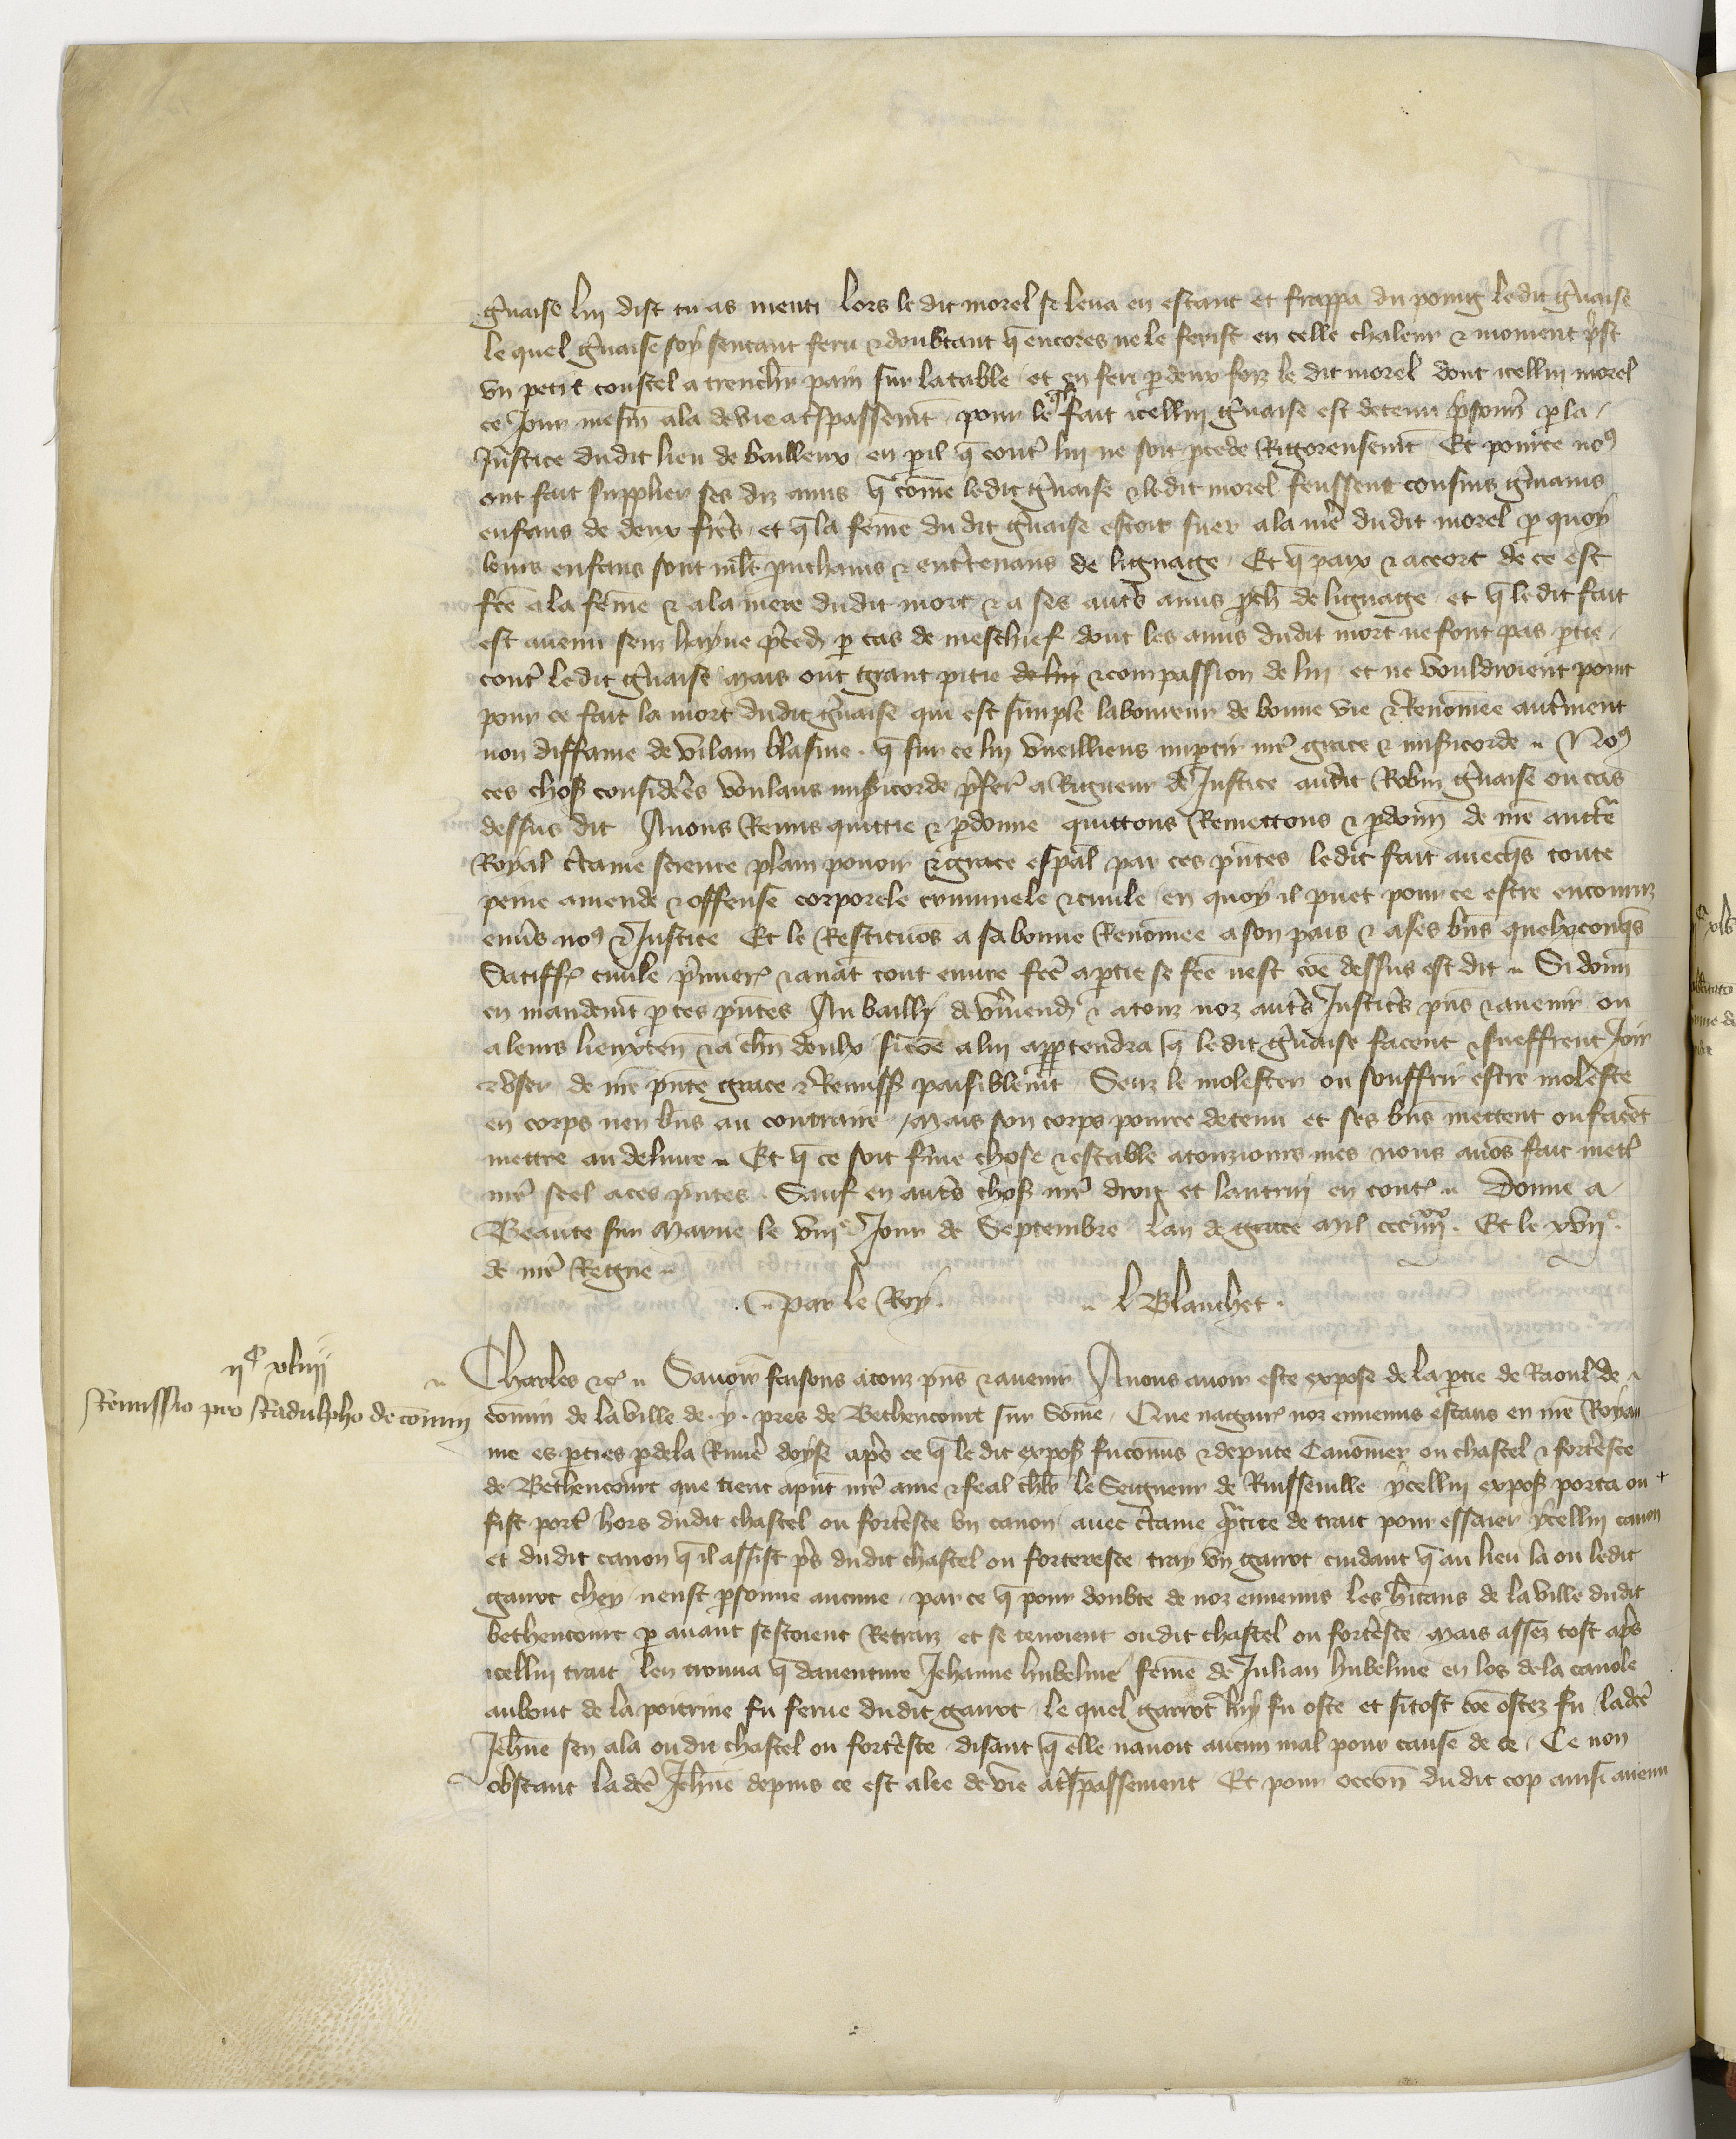 gvaise lui dist tu as menti Lors le dit morel se leva en estant et frappa du poing ledit gvaise
le quel gvaise soy sentant feru & doubtant q̄ encores ne le ferist en celle chaleur & moment p̄st
un petit coustel a trencher pain sur la table et en feri p deux foiz le dit morel dont icellui morel
ce Jour mesm̄ ala de vie a t̄spassem̄t pour le q̄l fait icellui gvaise est detenu p̄sonn̄ p la
Justice dudit lieu de bailleux en pil q̄ cont̄ lui ne soit p̄cede Rigoreusem̄t Et pour ce no9
ont fait supplier ses diz amis q̄ cōme ledit gvaise & ledit morel feussent cousins gmains
enfans de deux fr̄es et q̄ la fēme du dit gvaise estoit suer a la me᷑ dudit morel p quoy
leurs enfans sont ml̄t p̄uchains & ent̄tenans de lignage Et q̄ paix & accort de ce est
fc̄e a la fēme & a la mere dudit mort & a ses aut̄s amis p̄ch de lignage et q̄ le dit fait
est avenu senz hayne p̄ced p cas de meschief dont les amis dudit mort ne font pas ptie
cont̄ ledit gvaise mais ont grant pitie de lui & compassion de lui et ne vouldroient point
pour ce fait la mort dudit gvaise qui est simple laboureur de bonne vie & Renōmee aut̄ment
non diffame de vilain blasme q̄ sur ce lui vueilliens imptir nr̄e grace & mis̄icorde No9
ces chos̄ considēes voulans mis̄icorde p̄fer̄ a Rigueur de Justice audit Robin gvaise ou cas
dessus dit Avons Remis quittie & pdonne quittons Remettons & pdonn̄ de nr̄e auct̄e
Royal c̄taine science plain povoir & grace esp̄al par ces p̄ntes ledit fait avecq̄s toute
peine amende & offense corporele criminele & civile en quoy il puet pour ce estre encouruz
env̄s no9 & Justice Et le Restituōs a sa bonne Renōmee a son pais & a ses bn̄s quelxconq̄s
Satiff civile p̄mier & avāt tout euvre fc̄e a ptie se fc̄e nest cōe dessus est dit Si donn̄
en mandem̄t p ces p̄ntes Au bailli de v̄mend & a touz noz aut̄s Justic̄s p̄ns & avenir ou
a leurs lieuxten̄ & a ch̄n deulx sicōe a lui apptendra q̄ ledit gvaise facent & sueffrent Joir
& user de nr̄e p̄nte grace & Remiss̄ paisiblem̄t Senz le molester ou souffrir estre moleste
en corps nen bn̄s au contraire Mais son corps pour ce detenu et ses bn̄s mettent ou facēt
mettre au delivre Et q̄ ce soit f̄me chose & estable a touziours mes nous avōs fait mett̄
nr̄e seel a ces p̄ntes Sauf en aut̄s chos̄ nr̄e droit et lautruy en tout Donne a
Beaute sur Marne le viii e Jour de Septembre Lan de grace Mil ccc iiii xx Et le xvii e
de nr̄e Regne
Par le Roy L Blanchet
ii c xliiii
Remissio pro Radulpho de cōmin
Charles &c Savoir faisons a touz p̄ns & avenir Avons avoir este expose de la ptie de Raoul de
cōmin de la ville de y pres de Bethencourt sur Sōme Que nagair̄ noz ennemis estans en nr̄e Royau
me es pties p dela Rivie᷑ doyse ap̄s ce q̄ le dit expos̄ fu cōmis & depute Canonnier ou chastel & fort̄esce
de Bethencourt que tient a p̄nt nr̄e ame & feal chlr̄ le Seigneur de Rinsseville ycellui expos̄ porta ou
fist port̄ hors dudit chastel ou fort̄esce un canon avec c̄taine q̄ntite de trait pour essaier ycellui canon
et dudit canon q̄ il assist p̄s dudit chastel ou forteresce tray un garrot cuidant q̄ au lieu la ou ledit
garrot chey neust psonne aucune par ce q̄ pour doubte de noz ennemis les h̄itans de la ville dudit
bethencourt p avant sestoient Retraiz et se tenoient oudit chastel ou fort̄esce Mais assez tost ap̄s
icellui trait len trouva q̄ daventure Jehanne hubeline fēme de Julian hubeline en los de la canole
au bout de la poitrine fu ferue dudit garrot Le quel garrot luy fu oste et si tost cōe ostez fu ladc̄e
Jehn̄e sen ala oudit chastel ou fort̄esce disant q̄ elle navoit aucun mal pour cause de ce Ce non
obstant ladc̄e Jehn̄e depuis ce est alee de vie a t̄spassement Et pour occon̄ dudit cop ainsi avenu